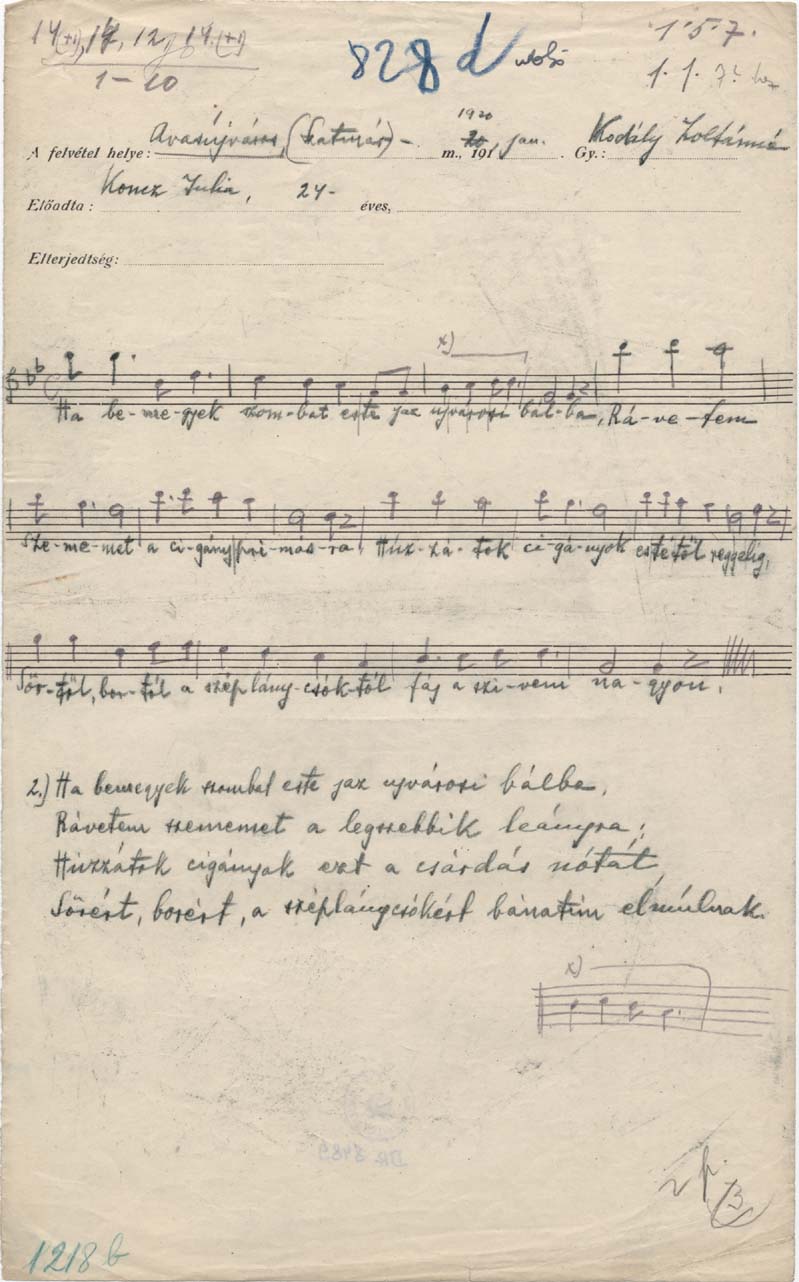 14(+1), 14, 12, 14(+1)
1–10
828 d utolsó
1. 5. 7.
1. 1. 7
A felvétel helye: Avasújváros, (Szatmár) – 1920 m., 191 jan. Gy.: Kodály Zoltánné
Előadta: Koncz Julia, 24- éves,
Elterjedtség:
x)
Ha be-me-gyek szom-bat este jaz ujvárosi bál-ba, Rá-ve-tem
Sze-me-met a ci-gány pri-más-ra, Húz-zá-tok ci-gá-nyok estétől reggelig,
Sör-től, bor-tól a széplány-csók-tól fáj a szi-vem na-gyon.
2.) Ha bemegyek szombat este jaz ujvárosi bálba,
Rávetem szememet a legszebbik leányra;
Húzzátok cigányok ezt a csárdás nótát,
Sörért, borért, a széplánycsókért bánatim elmúlnak.
x)
DR 8489
B
1218 b